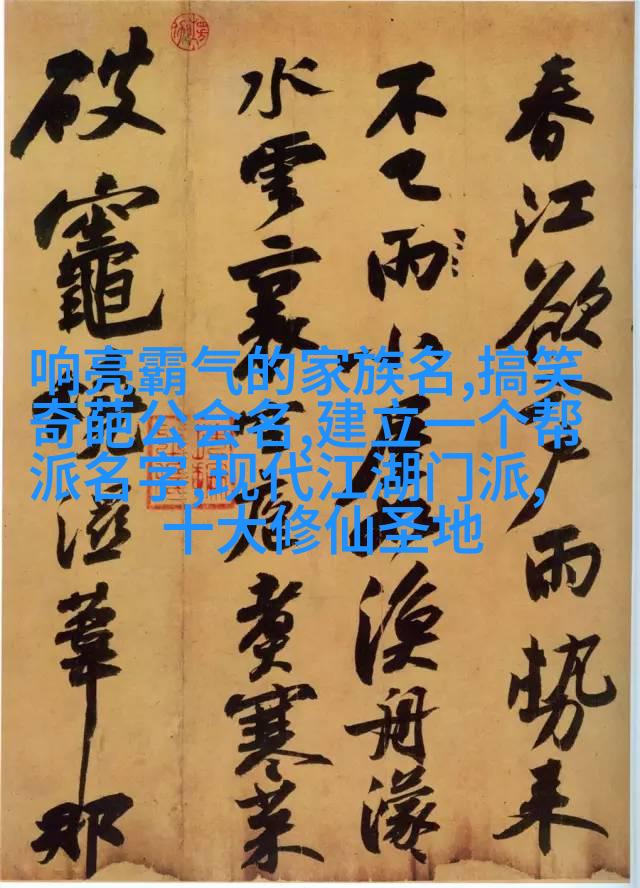 春江欲入戶雨勢來
不已雨小屋漁舟濛
水雲裏空庖煮寒菜
破竈燒溼葦那
响亮霸气的家族名,搞笑
奇葩公会名,建立一个帮
派名字,现代江湖门派,
十大修仙圣地